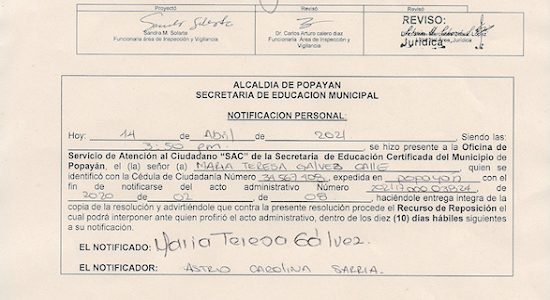 Proyectó Revisó Revisó
Sandra M. Solarte Dr. Carlos Arturo calero diaz REVISO:
Funcionaria Área de Inspección y Vigilancia Funcionario Área de Inspección y Vigilancia Jurídica
ALCALDIA DE POPAYAN
SECRETARIA DE EDUCACION MUNICIPAL
NOTIFICACION PERSONAL:
Hoy: 14 de Abril de 2021, Siendo las:
3:50 pm., se hizo presente a la Oficina de
Servicio de Atención al Ciudadano “SAC” de la Secretaria de Educación Certificada del Municipio de
Popayán, el (la) señor (a) MARIA TERESA GALVES CALLE quien se
identificó con la Cédula de Ciudadanía Número expedida en POPAYAN con el
fin de notificarse del acto administrativo Número de
2020 de 02 de 08, haciéndole entrega integra de la
copia de la resolución y advirtiéndole que contra la presente resolución procede el Recurso de Reposición el
cual podrá interponer ante quien profirió el acto administrativo, dentro de los diez (10) días hábiles siguientes
a su notificación.
EL NOTIFICADO: Maria Teresa Gálvez.
EL NOTIFICADOR: ASTRID CAROLINA SARRIA.